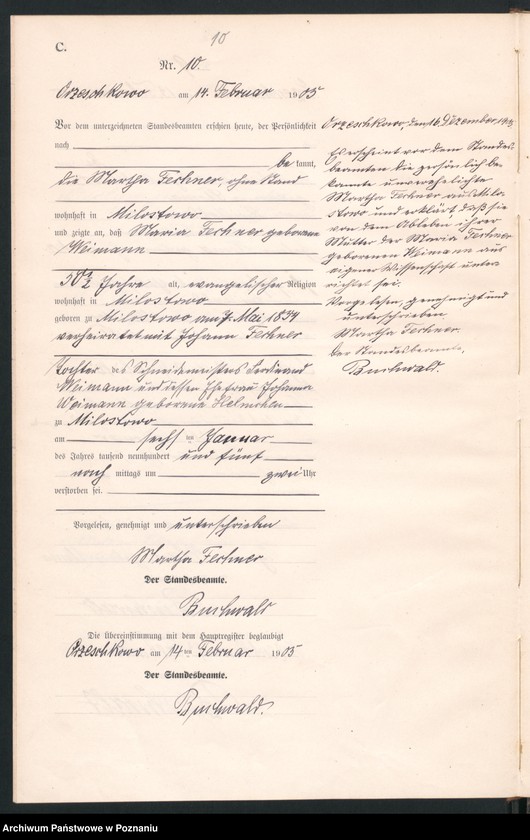 10
C.
Nr. 10.
Orzeschkowo am 14. Februar 1905
Vor dem unterzeichneten Standesbeamten erschien heute, der Persönlichkeit
nach
be kannt,
die Martha Fechner, ohne Stand
wohnhaft in Milostowo
und zeigte an, daß Maria Fechner geborene
Weimann
Jahre alt, evangelischer Religion
wohnhaft in Milostowo
geboren zu Milostowo am 7. Mai 1834
verheiratet mit Johann Fechner
Tochter des Schneidemeisters Ferdinand
Weimann und dessen Ehefrau Johanna
Weimann geborene
zu Milostowo
am sechs ten Januar
des Jahres tausend neunhundert und fünf
nach mittags um zwei Uhr
verstorben sei.
Vorgelesen, genehmigt und unterschrieben
Martha Fechner
Der Standesbeamte.
Buchwald
Die Übereinstimmung mit dem Hauptregister beglaubigt
Orzeschkowo am 14 ten Februar 1905
Der Standesbeamte.
Buchwald.
Orzeschkowo, den 16. Dezember
Es erscheint vor dem Standes
beamten die persönlich be
kannte unverehelichte
Martha Fechner aus Milo
stowo und erklärt, daß sie
von dem Ableben ihrer
Mutter der Maria Fechner
geborenen Weimann aus
eigener Wissenschaft unter
richtet sei.
Vorgelesen, genehmigt und
unterschrieben
Martha Fechner
Der Standesbeamte,
Buchwald.
Archiwum Państwowe w Poznaniu